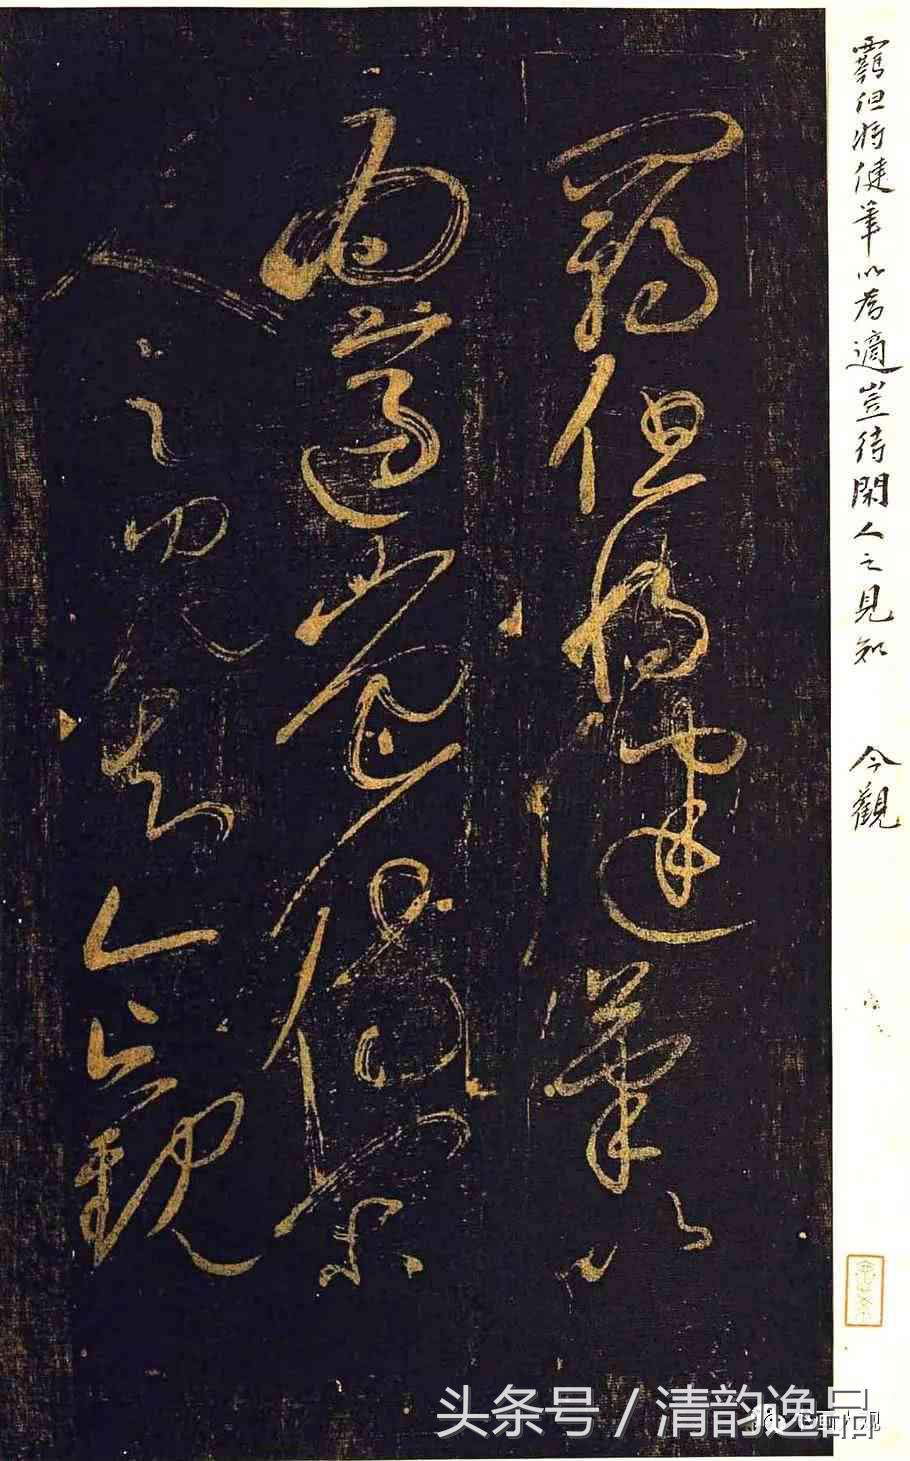 覊但将健筆以為適豈待閑人之見知 今觀
覊但將健筆以
為適豈待閑
人之見知今觀
头条号 / 清韵逸品